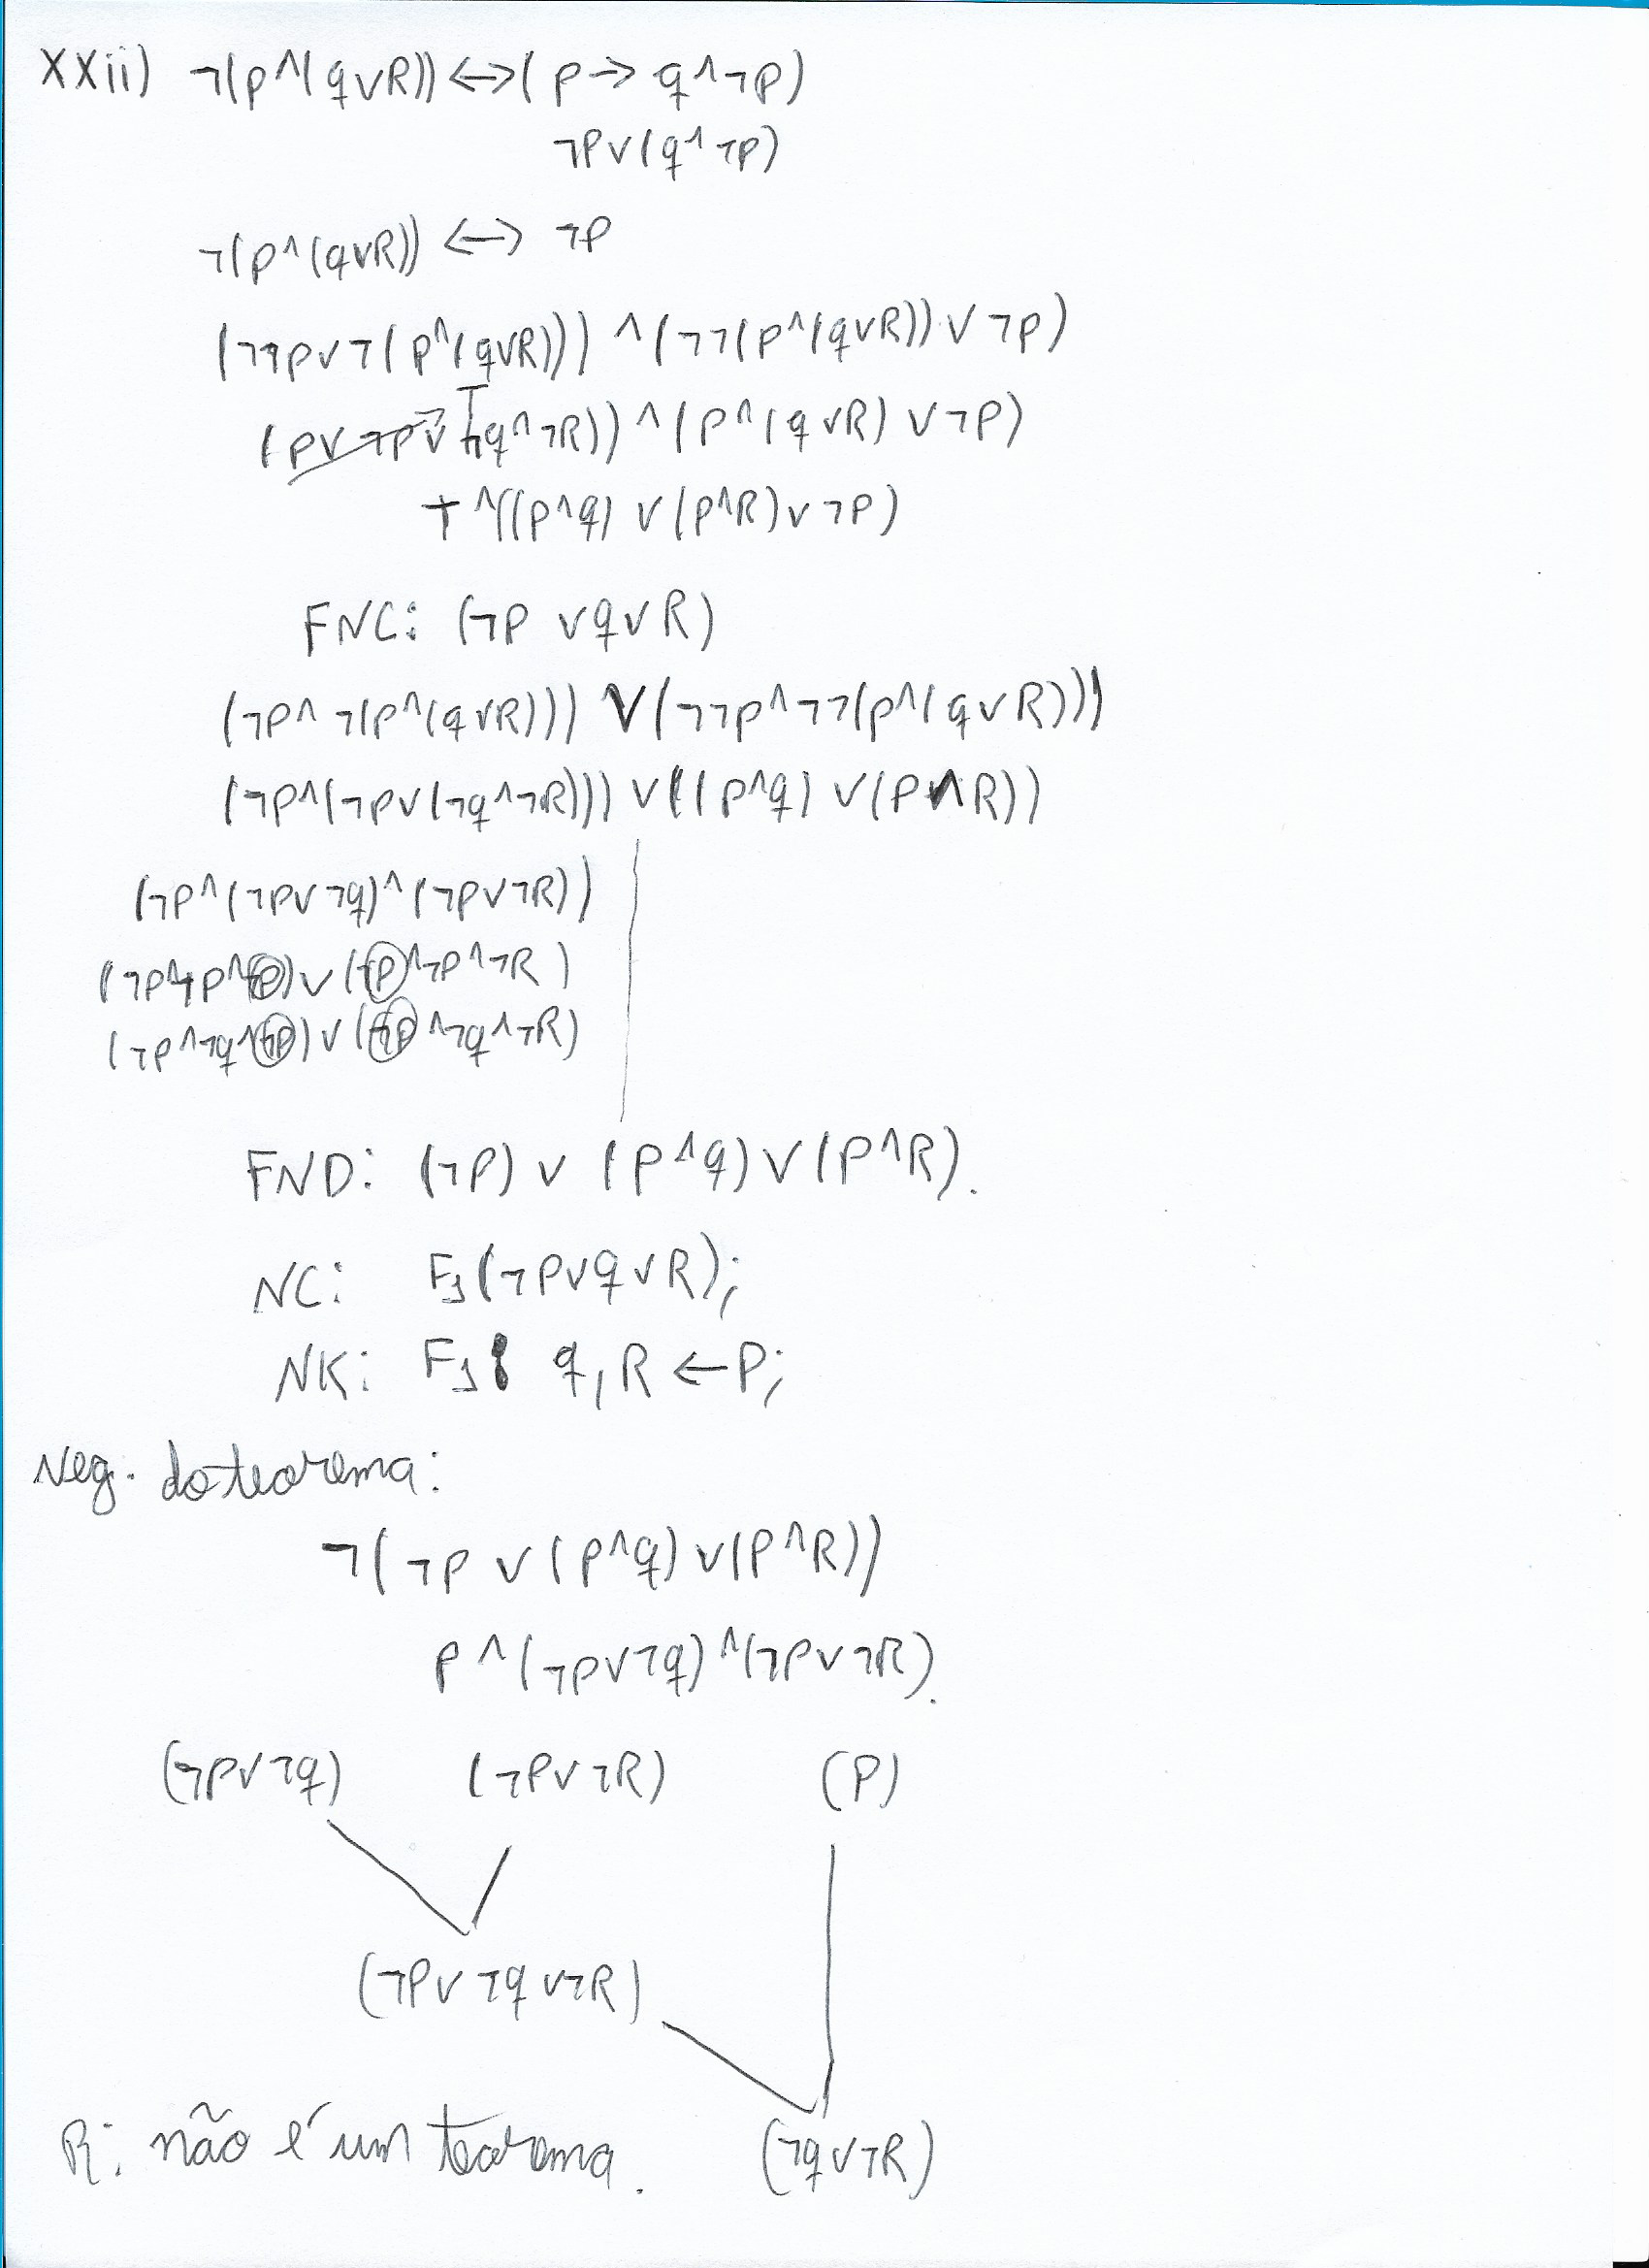 XXii) ¬(p∧(q∨R))↔(p→q∧¬p)
¬p∨(q∧¬p)
¬(p∧(q∨R)) ↔ ¬p
(¬¬p∨¬(p∧(q∨R))) ∧ (¬¬(p∧(q∨R))∨¬p)
(p∨¬p∨(¬q∧¬R)) ∧ (p∧(q∨R)∨¬p)
T
T ∧((p∧q) ∨ (p∧R)∨¬p)
FNC: (¬p ∨q∨R)
(¬p∧¬(p∧(q∨R))) ∨ (¬¬p∧¬¬(p∧(q∨R)))
(¬p∧(¬p∨(¬q∧¬R))) ∨((p∧q) ∨(p∧R))
(¬p∧(¬p∨¬q)∧(¬p∨¬R))
(¬p∧¬p∧¬p)∨(¬p∧¬p∧¬R)
(¬p∧¬q∧¬p)∨(¬p∧¬q∧¬R)
FND: (¬p) ∨ (p∧q)∨(p∧R).
NC: F1(¬p∨q∨R);
NK: F1: q,R ←p;
Neg. do teorema:
¬(¬p ∨ (p∧q) ∨(p∧R))
p ∧(¬p∨¬q)∧(¬p∨¬R).
(¬p∨¬q) (¬p∨¬R) (p)
(¬p∨¬q∨¬R)
R: não é um teorema. (¬q∨¬R)